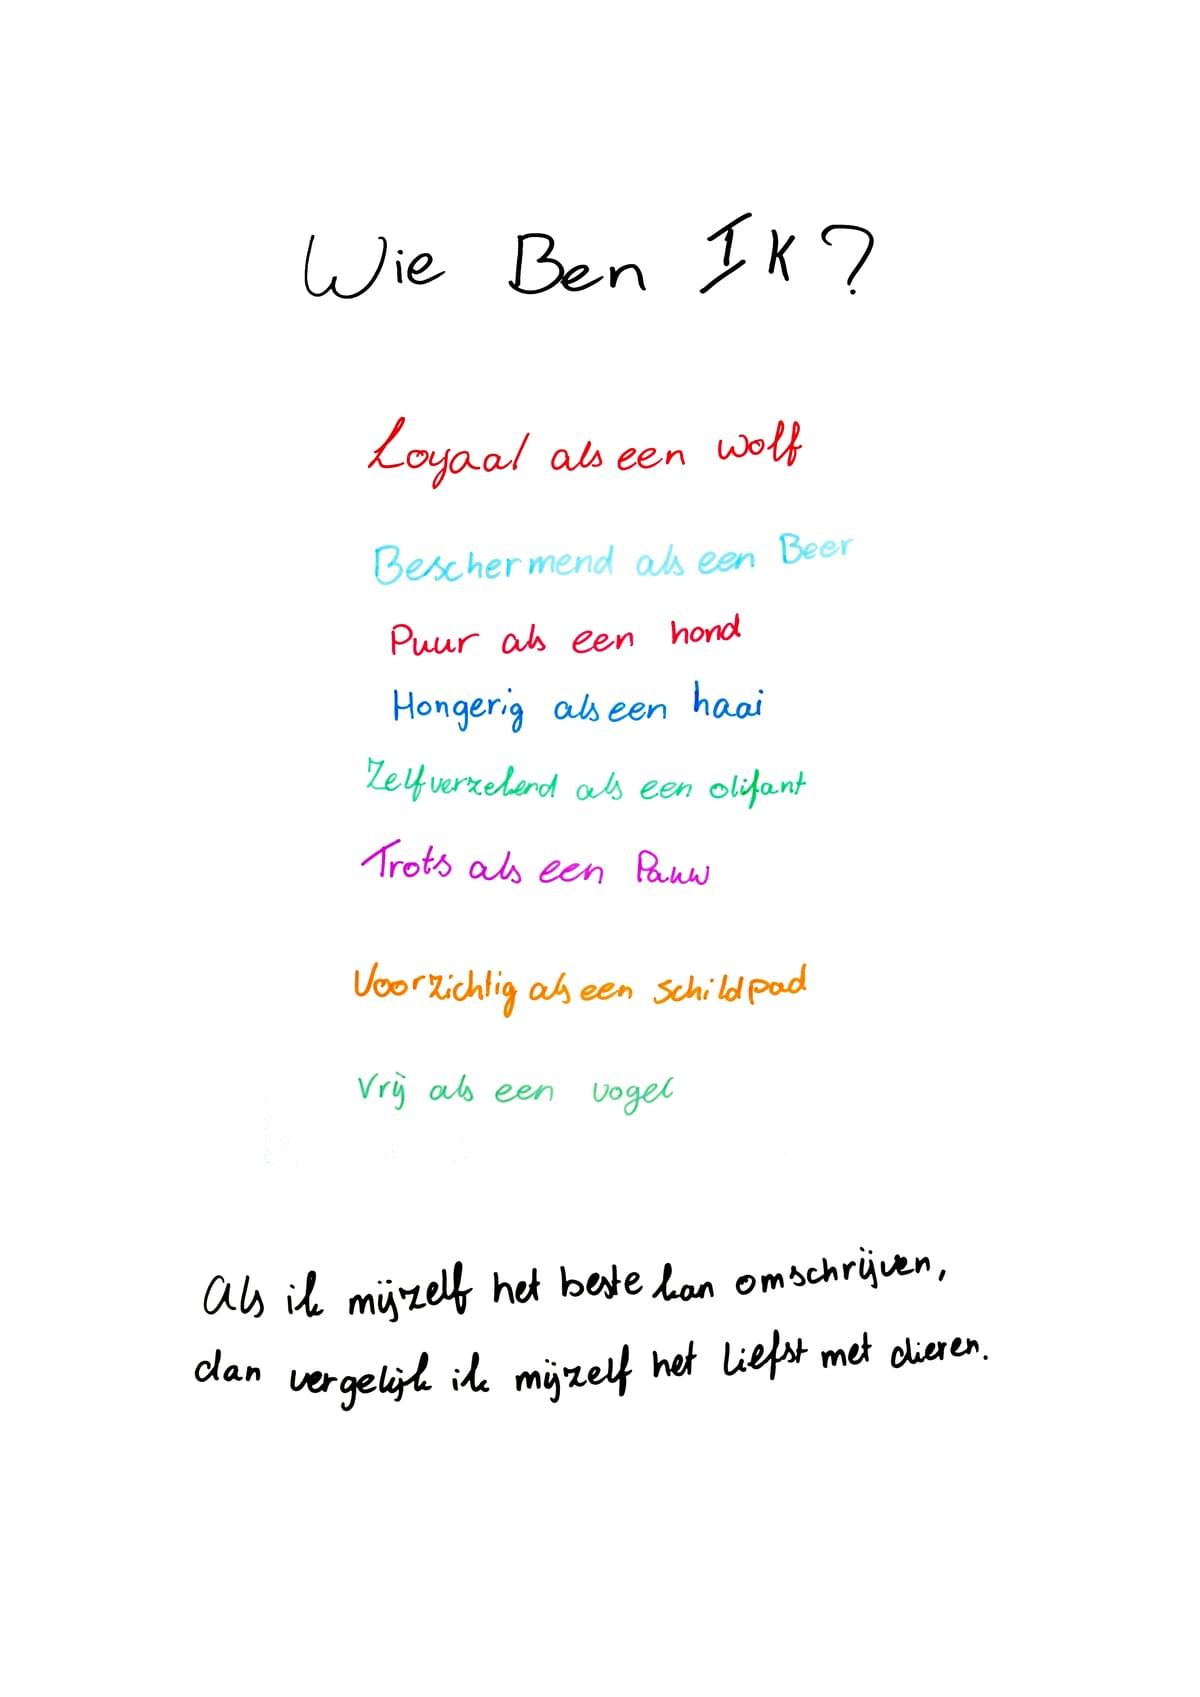 Wie Ben Ik?
Loyaal als een wolf
Beschermend als een Beer
Puur als een hond
Hongerig als een haai
Zelfverzekerd als een olifant
Trots als een Pauw
Voorzichtig als een schildpad
Vrij als een vogel
Als ik mijzelf het beste kan omschrijven,
dan vergelijk ik mijzelf het liefst met dieren.